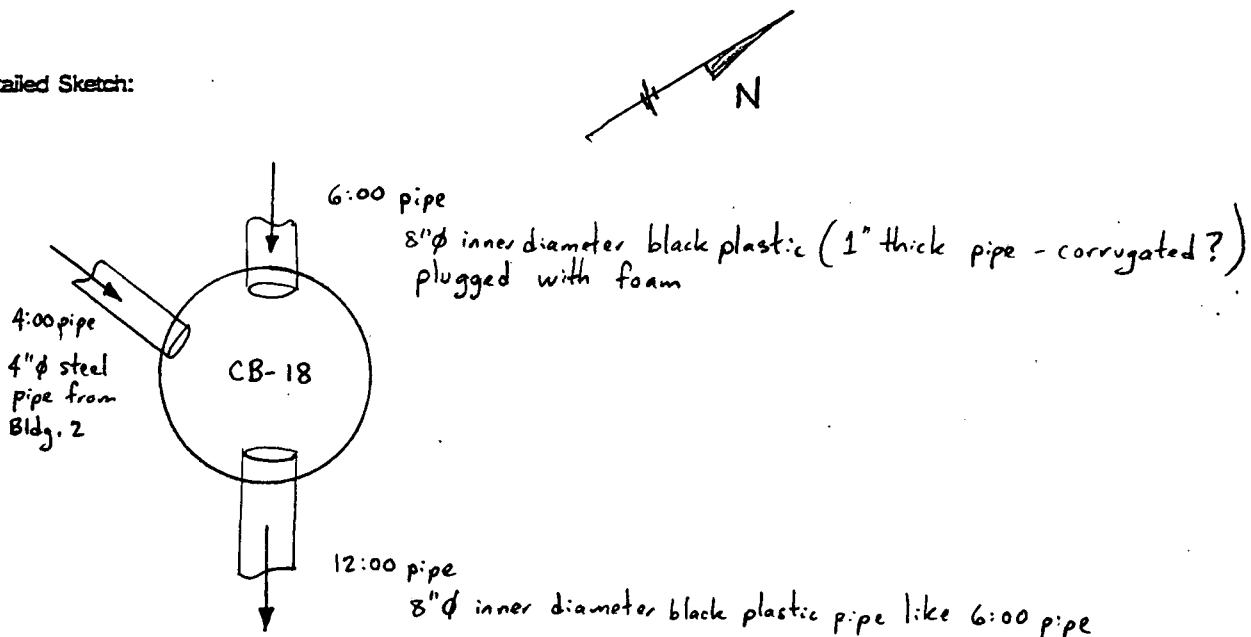 ailed Sketch:
N
6:00 pipe
8"φ inner diameter black plastic (1" thick pipe - corrugated?)
plugged with foam
4:00 pipe
4"φ steel
pipe from
Bldg. 2
CB-18
12:00 pipe
8"φ inner diameter black plastic pipe like 6:00 pipe